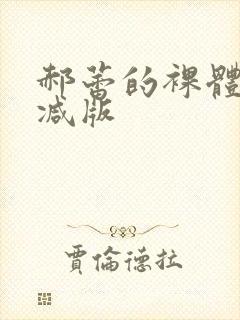 郝蕾的裸體
减版
賈倫德拉